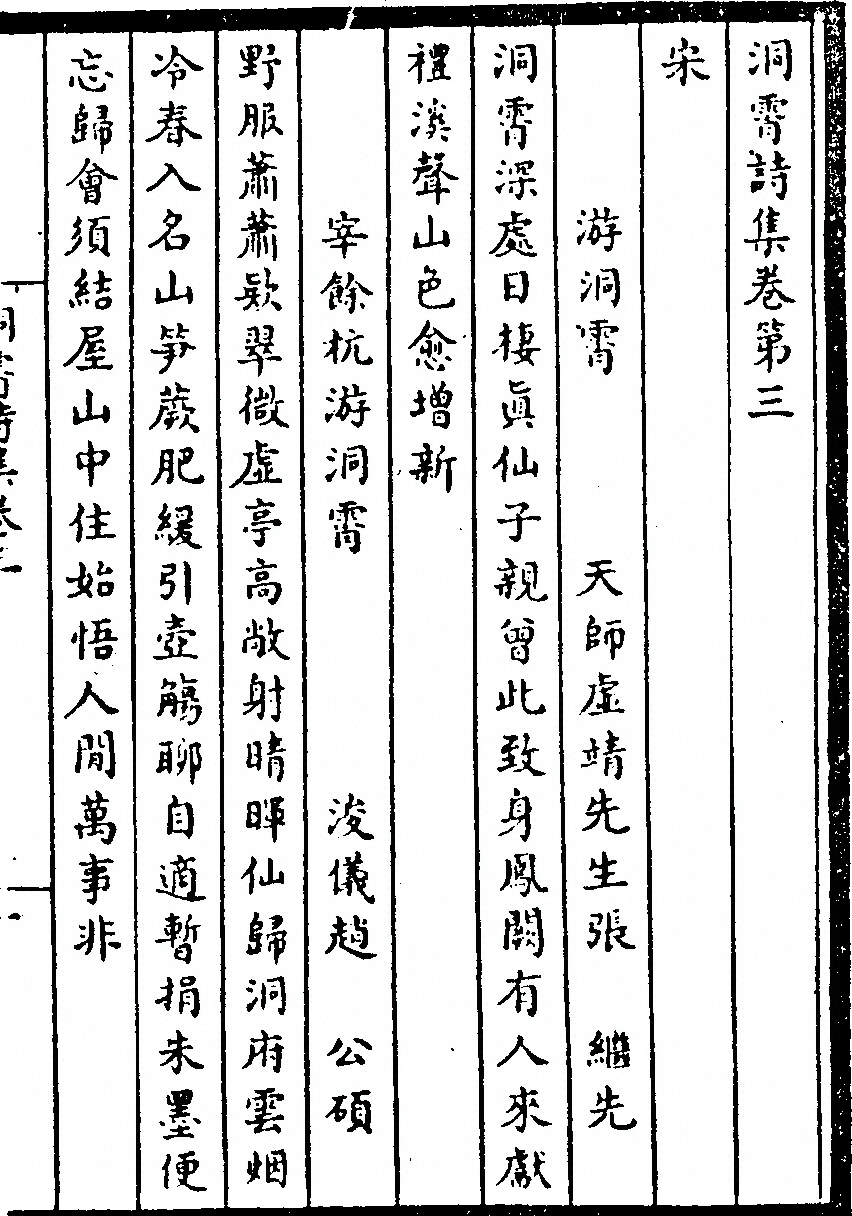 洞霄詩集卷第三
宋
游洞霄　天師虛靖先生張　繼先
洞霄深處日棲眞仙子親曾此致身鳳闕有人來獻
禮溪聲山色愈增新
宰餘杭游洞霄　浚儀趙　公碩
野服蕭蕭欵翠微虛亭高敞射晴暉仙歸洞府雲烟
冷春入名山笋蕨肥緩引壺觴聊自適暫捐朱墨便
忘歸會須結屋山中住始悟人間萬事非
洞霄詩集卷三